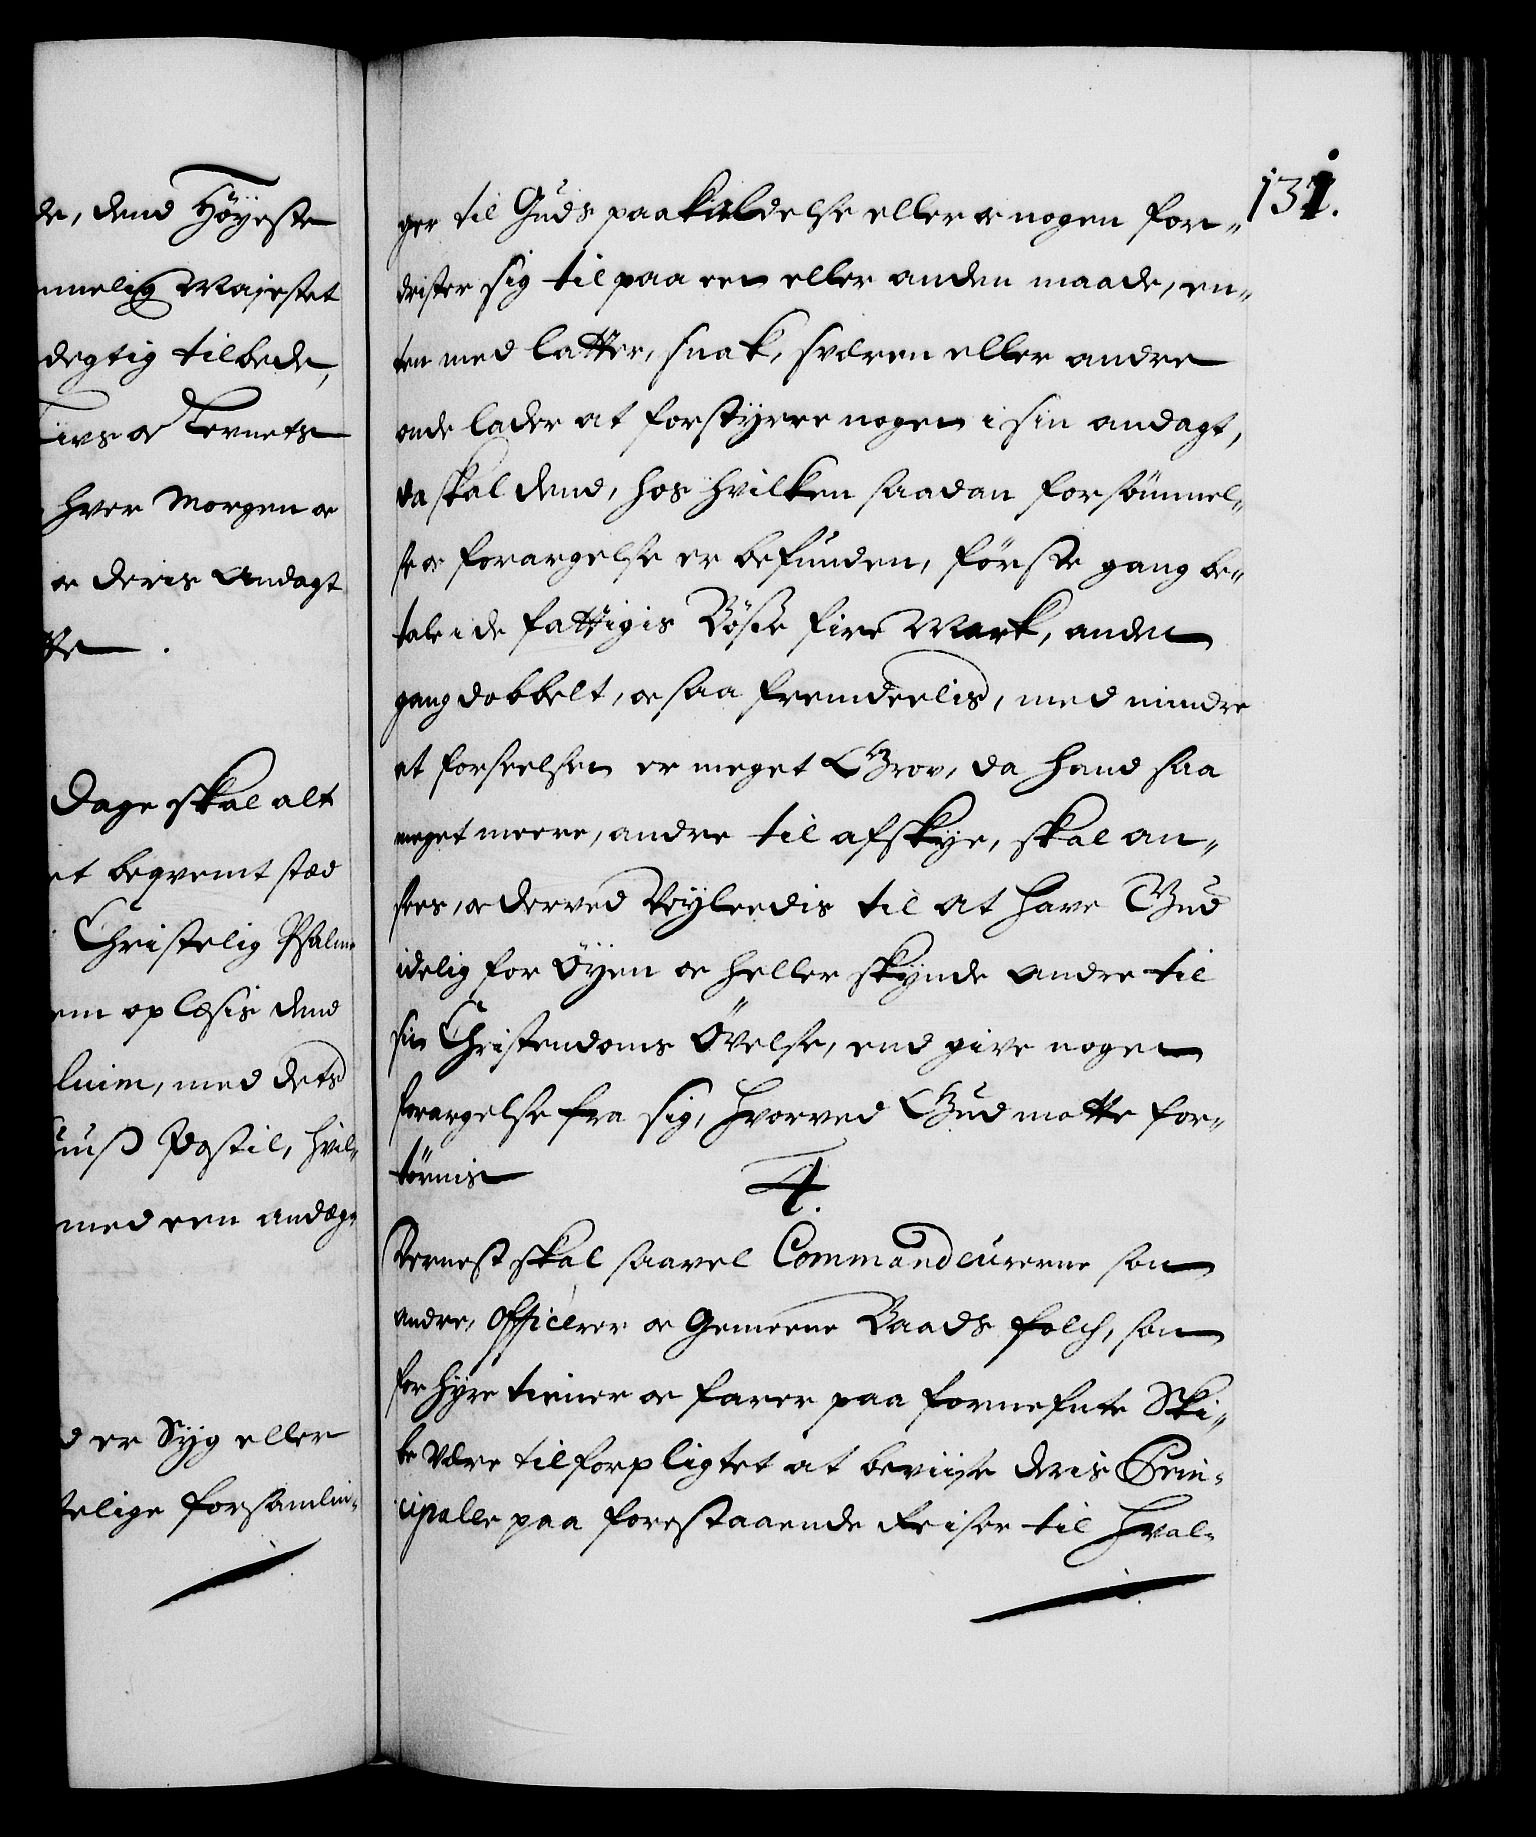 de, dend Høyeste
melig Majestet
degtig tilbede,
Livs oc Levnets
hver Morgen oc
oc deris Andagt
te.
Dage skal alt
et beqvemt stæd
Christelig Psalme
em oplæsis dend
luim, med dets
uuß Postil, hvil-
med een andæg-
d er Syg eller
telige forsamlin-
131.
ger til Guds paakaldelse eller oc nogen for-
drister sig til paa een eller anden maade, en-
ten med latter, snak, sværen eller andre
onde lader at forstyrre nogen i sin andagt,
da skal dend, hos hvilken saadan forsømmel-
se oc forargelse er befunden, første gang be-
tale i de fattigis Bøsse fire Mark, anden
gang dobbelt, oc saa fremdeelis, med mindre
at forseelsen er meget Grov, da hand saa
meget meere, andre til afskye, skal an-
sees, oc derved Veyleedis til at have Gud
idelig for Øyen oc heller skynde andre til
sin Christendoms Øvelse, end give nogen
forargelse fra sig, hvorved Gud motte for-
tørnis
4.
Dernest skal saavel Commandeurerne som
andre, Officerer oc Gemeene Baads folch, som
for hyre tiener oc farer paa fornefnte Ski-
be være tilforpligtet at beviise deris Prin-
cipaler paa forestaaende Reiser til Hval-